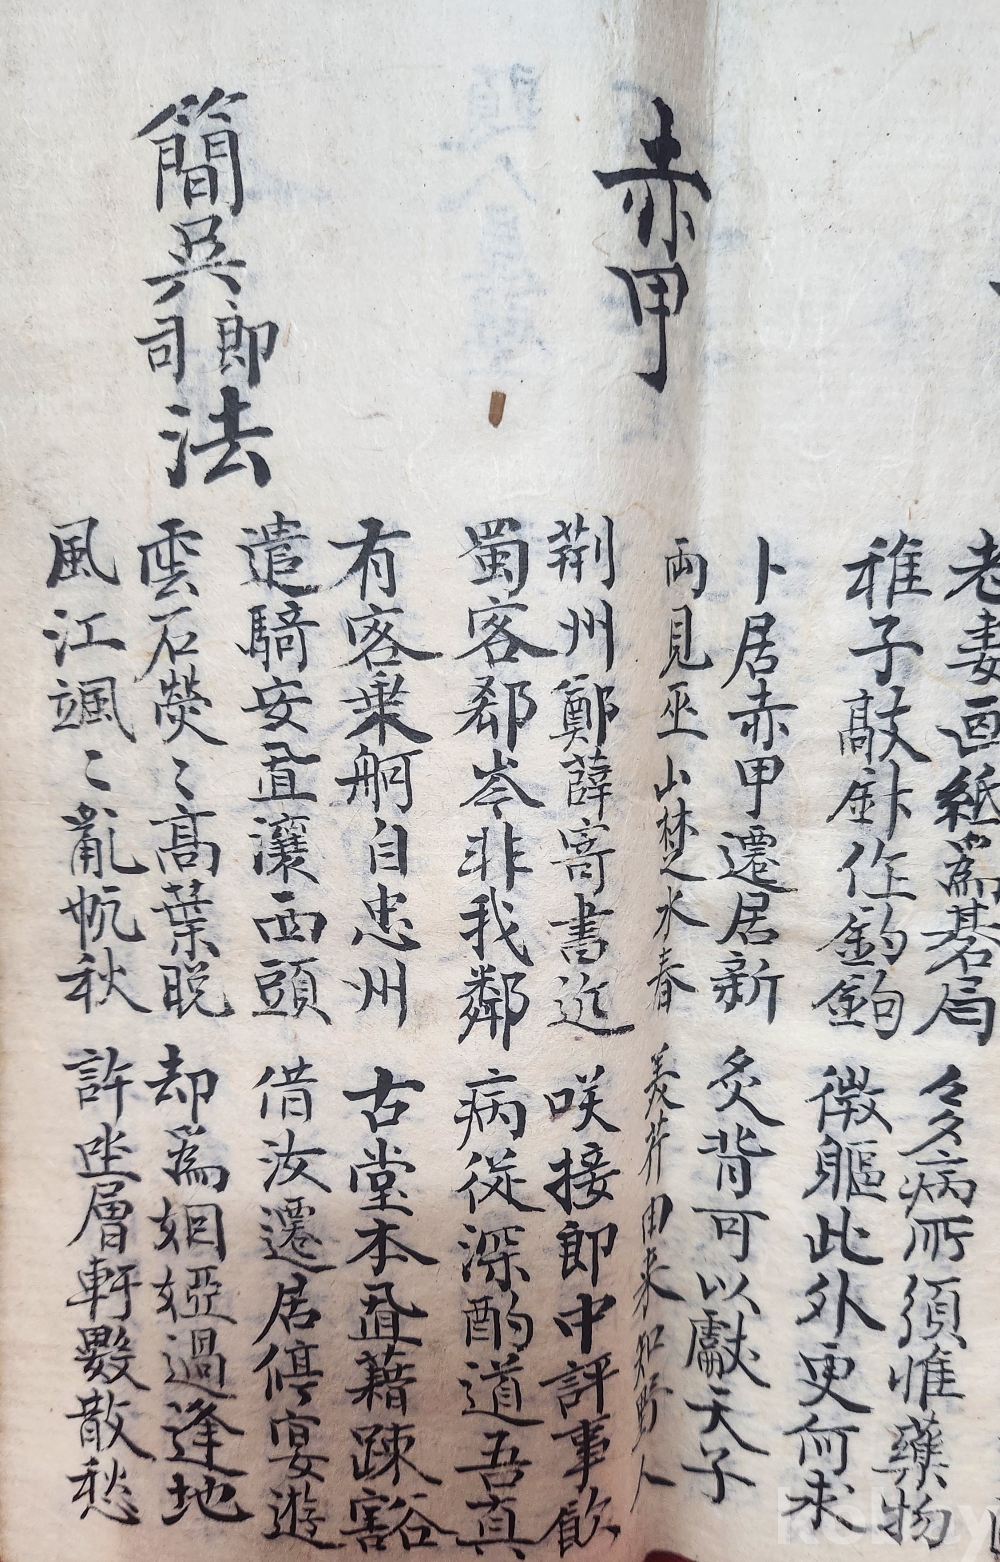 老妻画紙為碁局 多病所須惟藥物
稚子敲針作釣鉤 微軀此外更何求
赤甲
卜居赤甲遷居新 炙背可以獻天子
兩見巫山楚水春 美芹由来知野人
荊州鄭薛寄書近 咲接郎中評事飮
蜀客郄岑非我鄰 病從深酌道吾真
簡吳郎司法
有客乗舸自忠州 古堂本置藉踈豁
遣騎安置瀼西頭 借汝遷居停宴遊
雲石熒〻高葉脱 却爲姻婭過逢地
風江颯〻亂帆秋 許坐層軒數散愁